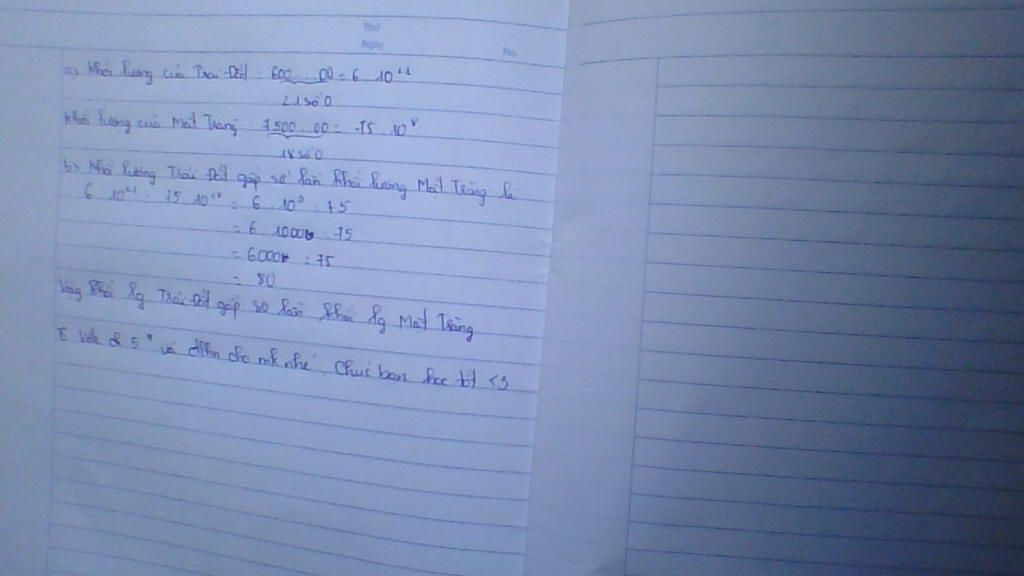 Thứ
Ngày No.
a) Khối lượng của Trái Đất: 600...00 = 6 . 10²¹
21 số 0
Khối lượng của Mặt Trăng 7500...00 = 75 . 10¹⁸
18 số 0
b) Khối lượng Trái Đất gấp số lần khối lượng Mặt Trăng là
6 . 10²¹ : 75 . 10¹⁸ = 6 . 10³ : 75
= 6 . 1000 : 75
= 6000 : 75
= 80
Vậy khối lg Trái Đất gấp 80 lần khối lg Mặt Trăng
Vote 5* và cho mk nhé Chúc bạn học tốt <3